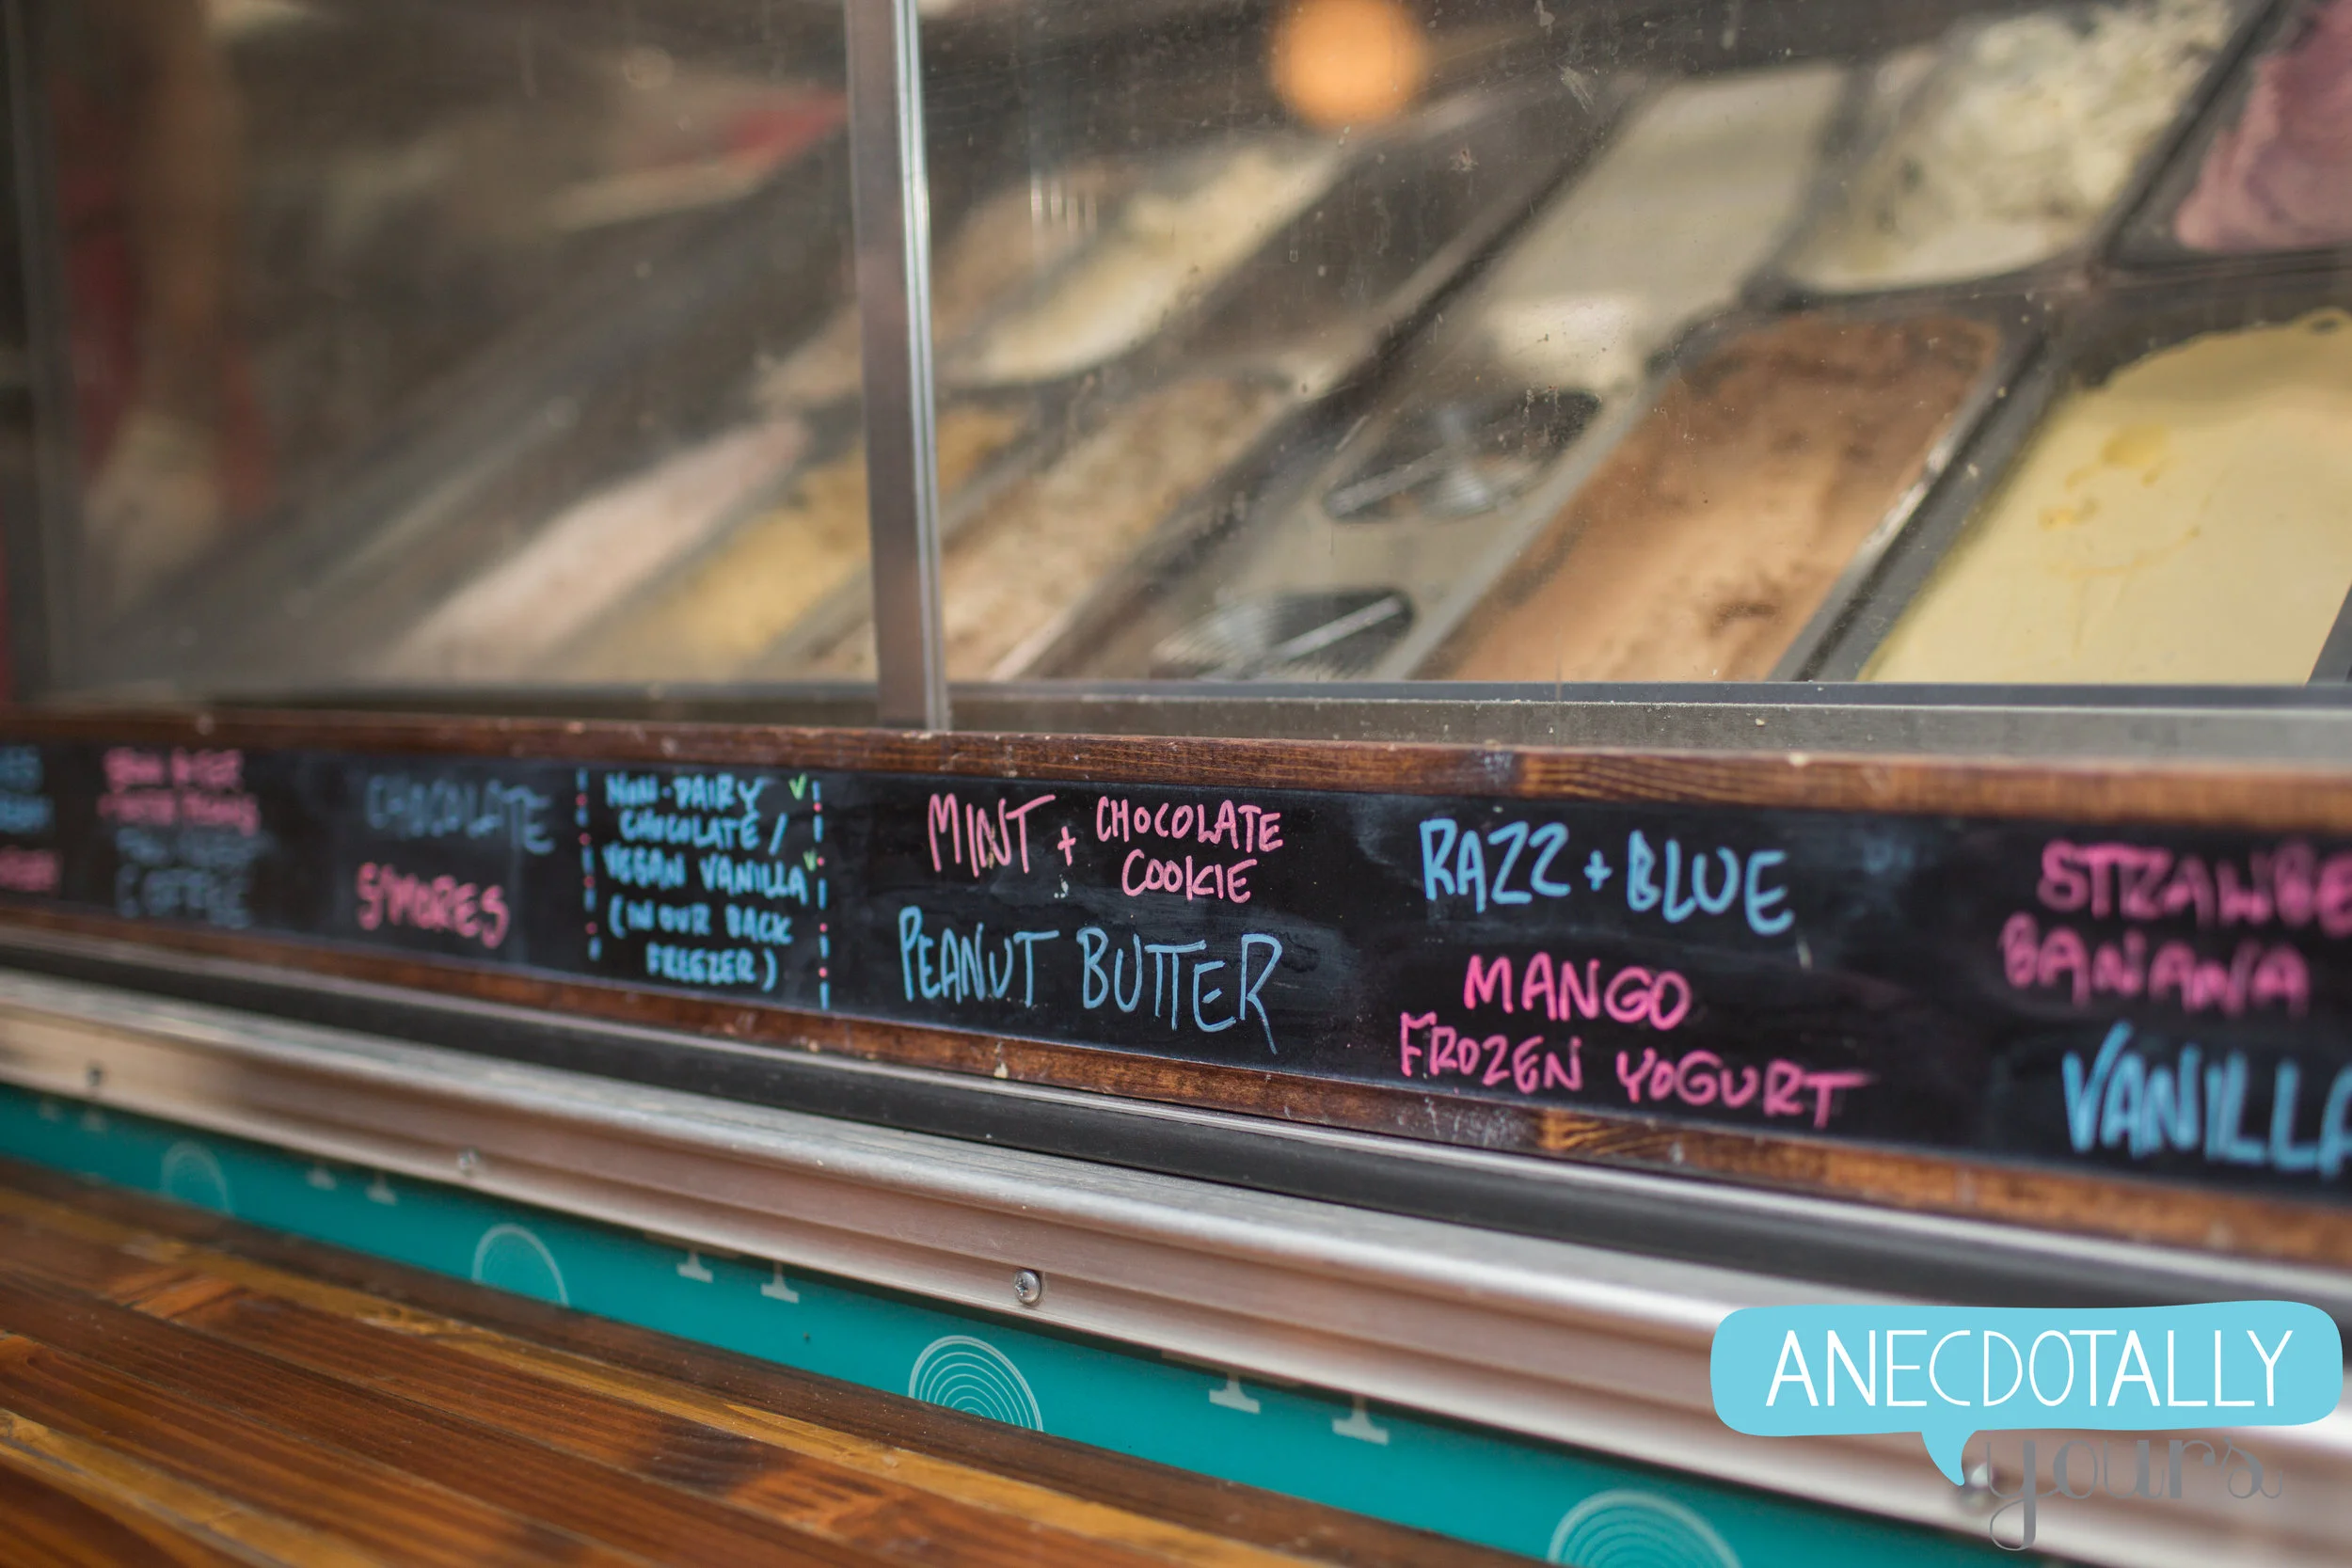 COFFEE
CHOCOLATE
S'MORES
NON-DAIRY
CHOCOLATE /
VEGAN VANILLA
(IN OUR BACK
FREEZER)
MINT + CHOCOLATE
COOKIE
PEANUT BUTTER
RAZZ + BLUE
MANGO
FROZEN YOGURT
STRAWBE
BANANA
VANILLA
ANECDOTALLY
yours